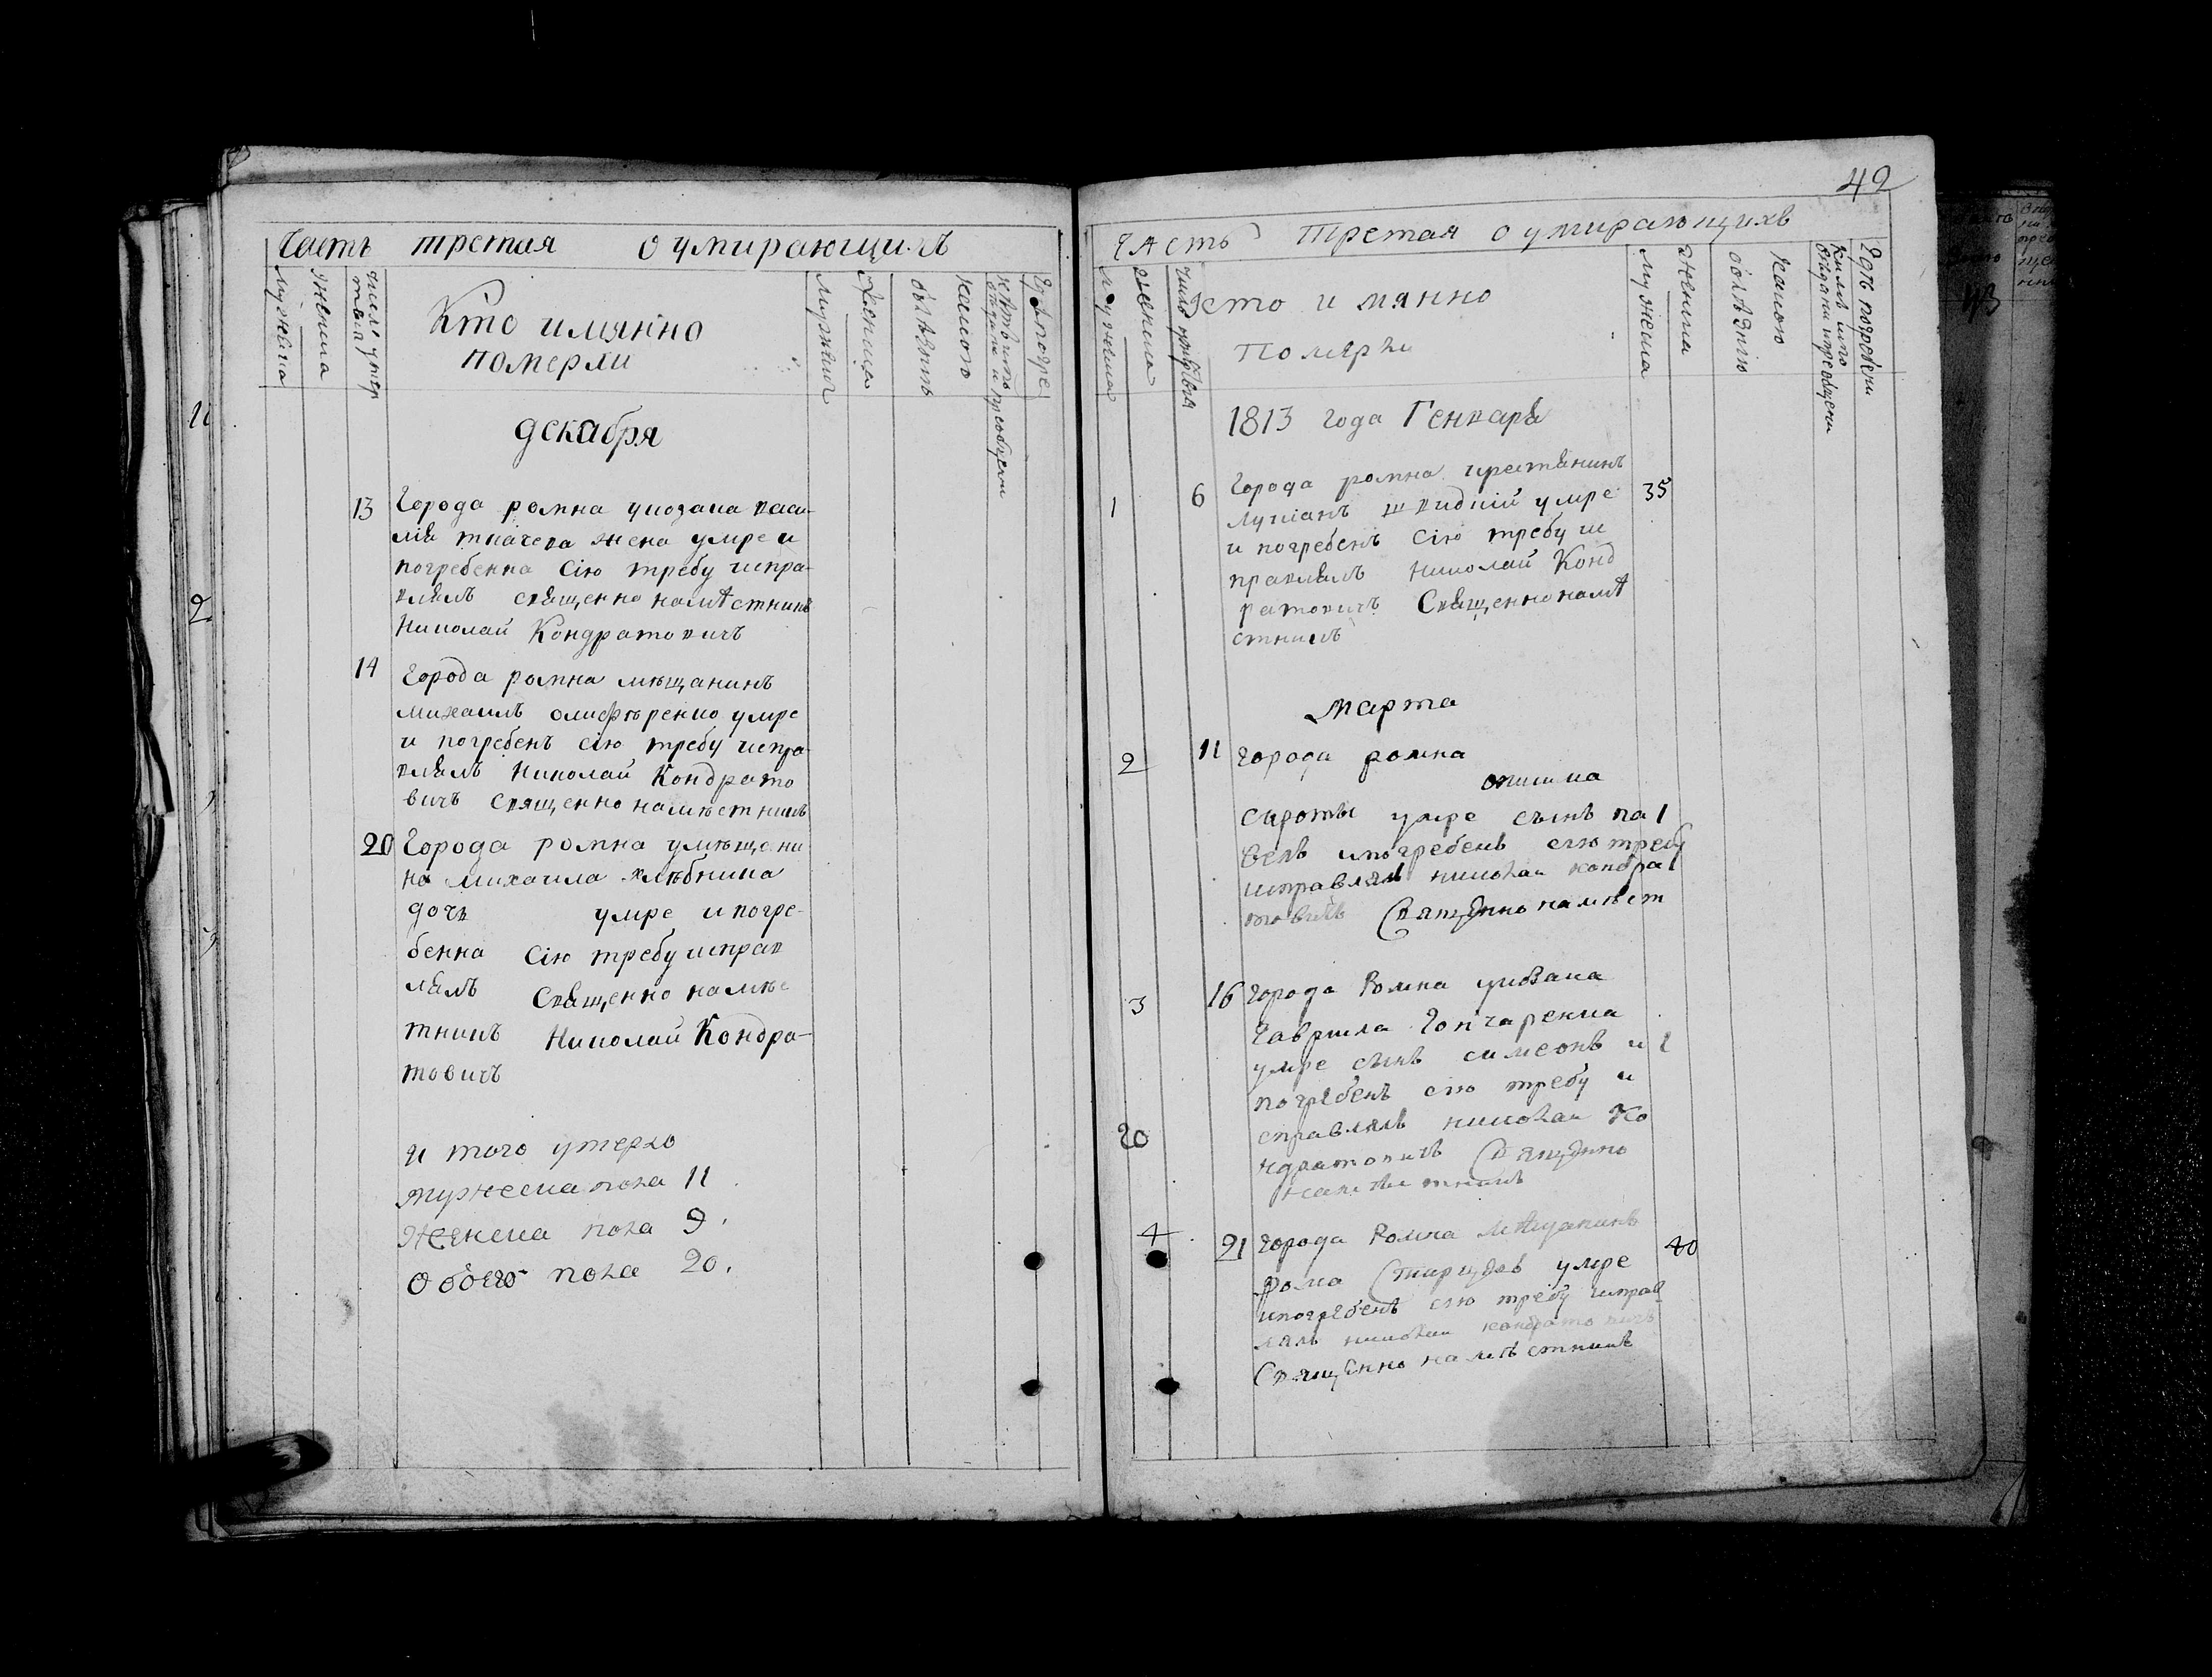 Часть третая о умирающихъ
Мужеска
Женска
числ умер
твія
Кто имянно
померли
Мужчин
Женща
болѣзнь
какою
Где погре
декабря
13 Города ромна у козака васи-
лія ткачева жена умре и
погребенна сію требу испра-
влялъ священно намѣстникъ
Николай Кондратовичъ
14 Города ромна мѣщанинъ
михаилъ олиферѣнко умре
и погребенъ сію требу испра-
влялъ Николай Кондрато
вичъ священно намѣстникъ
20 Города ромна у мѣщани
на михаила хлѣбника
дочь умре и погре-
бенна Сію требу исправ
лялъ Священно намѣс
тникъ Николай Кондра-
товичъ
и того умерло
мужеска пола 11
Женска пола 9.
Обоего пола 20.
42
ЧАсть Третая о умирающихъ
Мужеска
женска
Кто имянно
Померли
Мужеска
Женска
болѣзнію
какою
Гдѣ погребени
1813 года Генваря
1 6 Города ромна крестянинъ 35
лукіанъ швидкій умре
и погребенъ Сію требу ис
правлялъ Николай Конд
ратовичъ Священно намѣ
стникъ
Марта
2 11 города ромна
сироты умре сынъ па 1
велъ и погребенъ сію требу
исправлял николаи кондра
товичъ Священно намѣст
3 16 города Ромна у козака
Гаврила Гончаренка
умре сынъ симеонъ и 1
погребенъ сію требу и
справлялъ николаи Ко
20
ндратовичъ Священно
намѣстникъ
4 21 города Ромна мѣщанинъ 40
умре
и погребенъ сію требу исправ
лялъ николаи кондратовичъ
Священно намѣстникъ